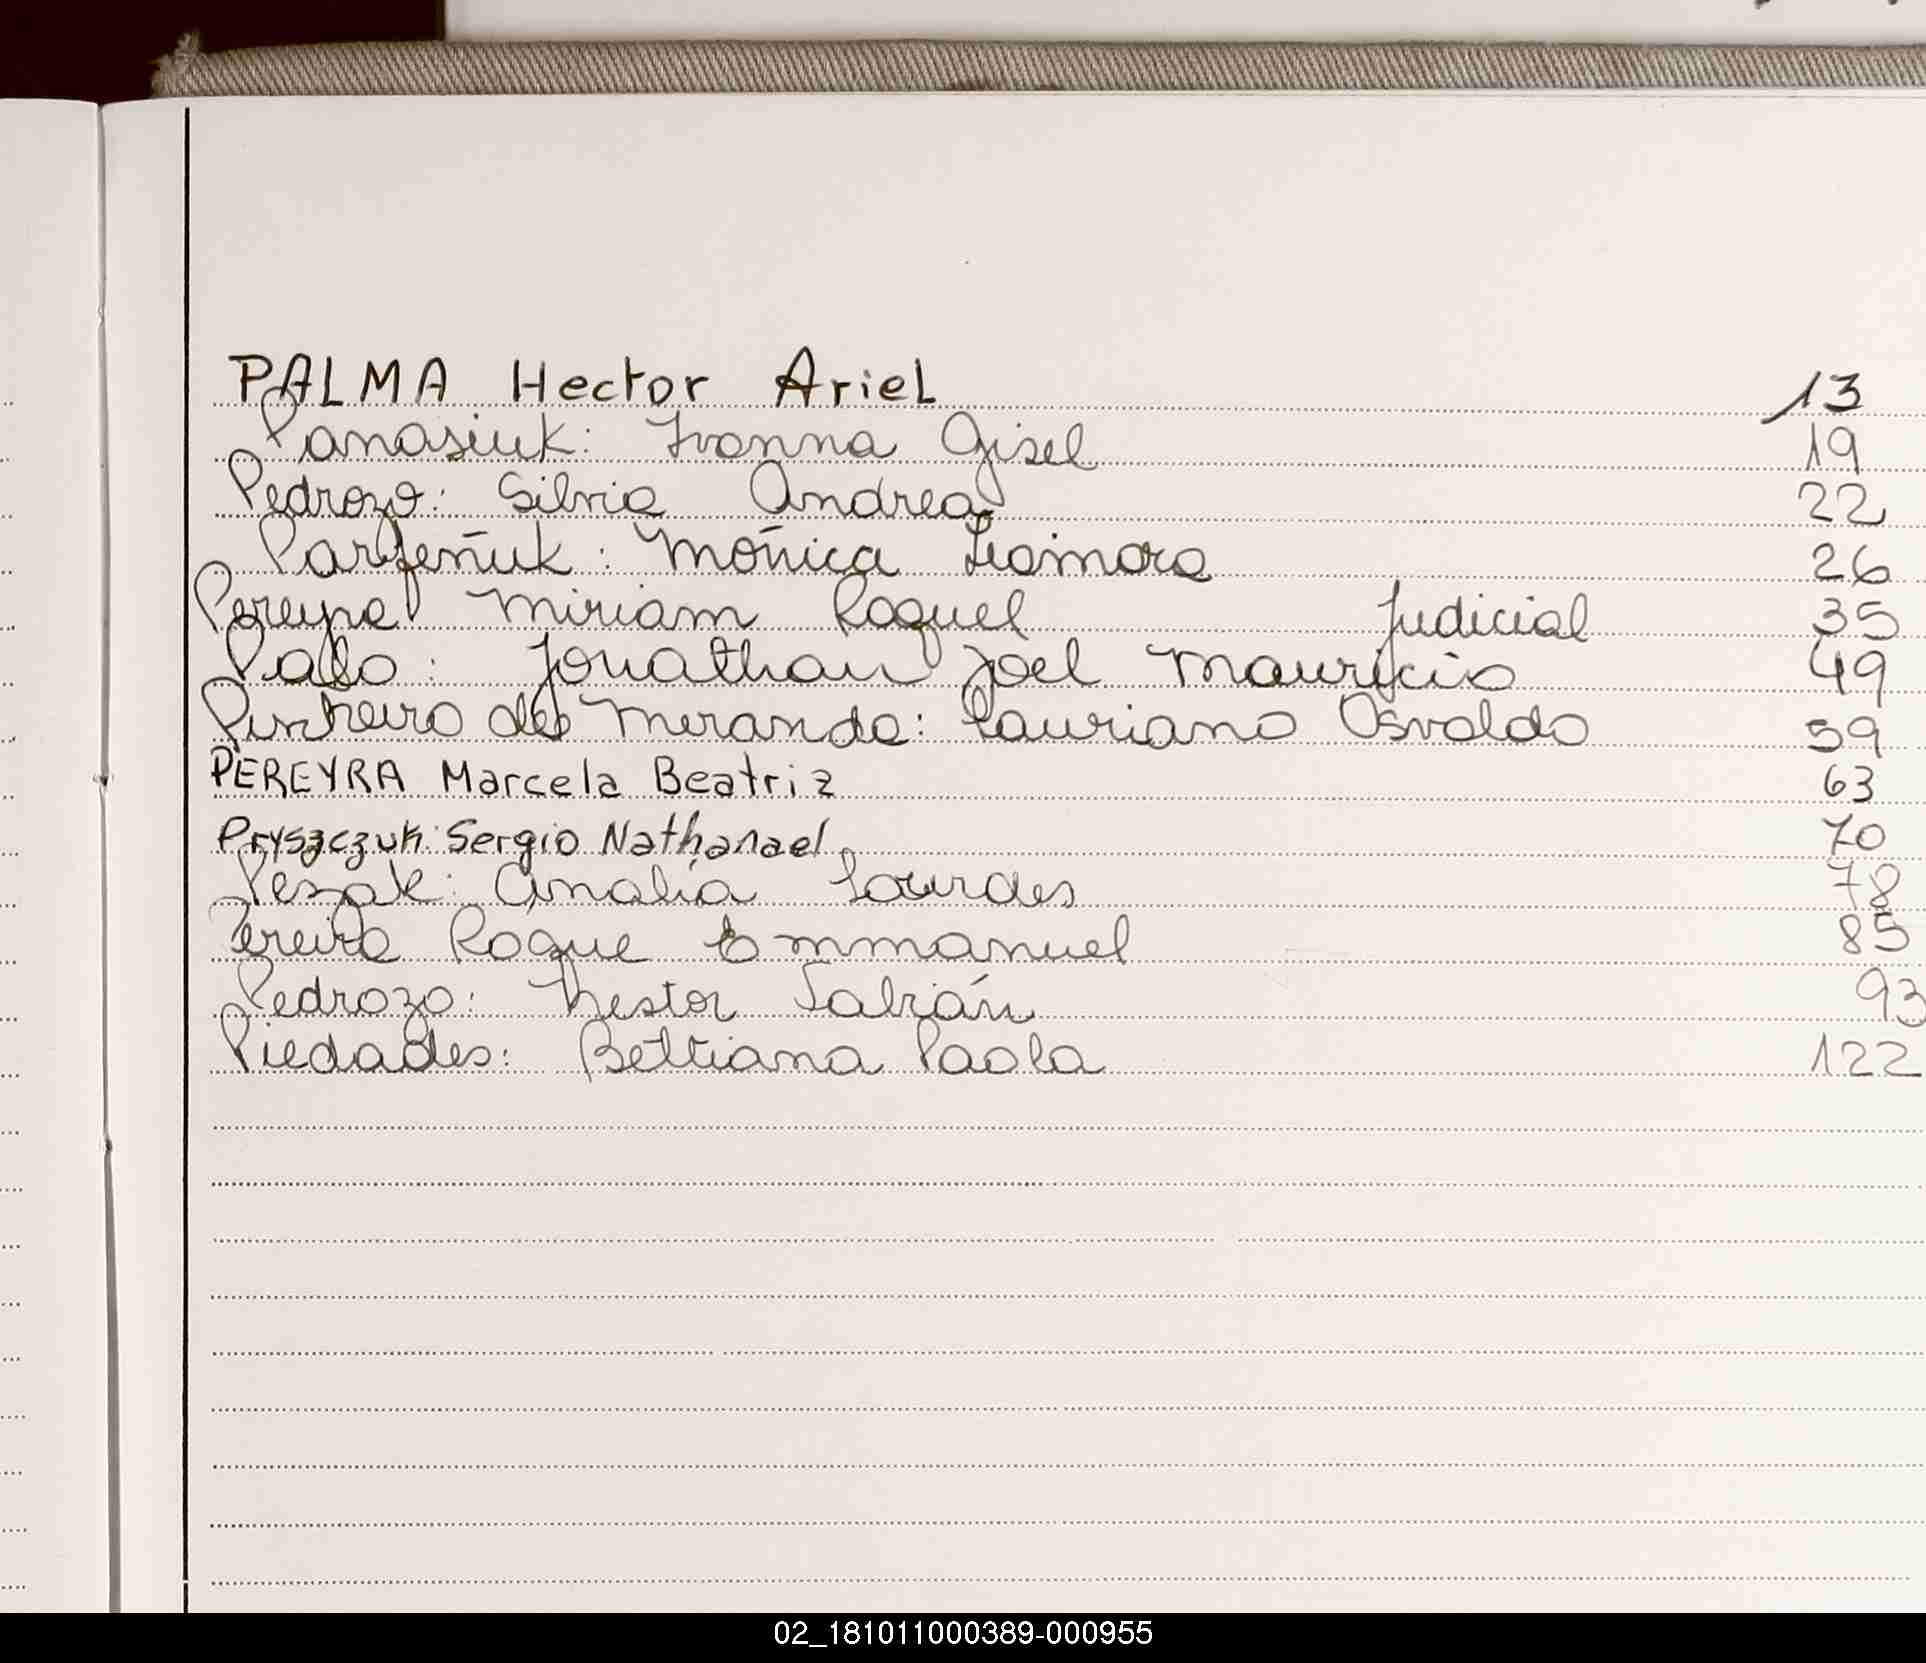 PALMA Hector Ariel 13
Panasiuk: Ivonna Gisel 19
Pedrozo: Silvia Andrea 22
Parfeñuk: Mónica Xiomara 26
Pereyra Miriam Raquel Judicial 35
Palo: Jonathan Joel Mauricio 49
Pinheiro de Miranda: Lauriano Osvaldo 59
PEREYRA Marcela Beatriz 63
Pryszczuk: Sergio Nathanael 70
Peszak: Analía Lourdes 78
Pereira Roque Emmanuel 85
Pedrozo: Nestor Fabián 93
Piedades: Bettiana Paola 122
02_181011000389-000955